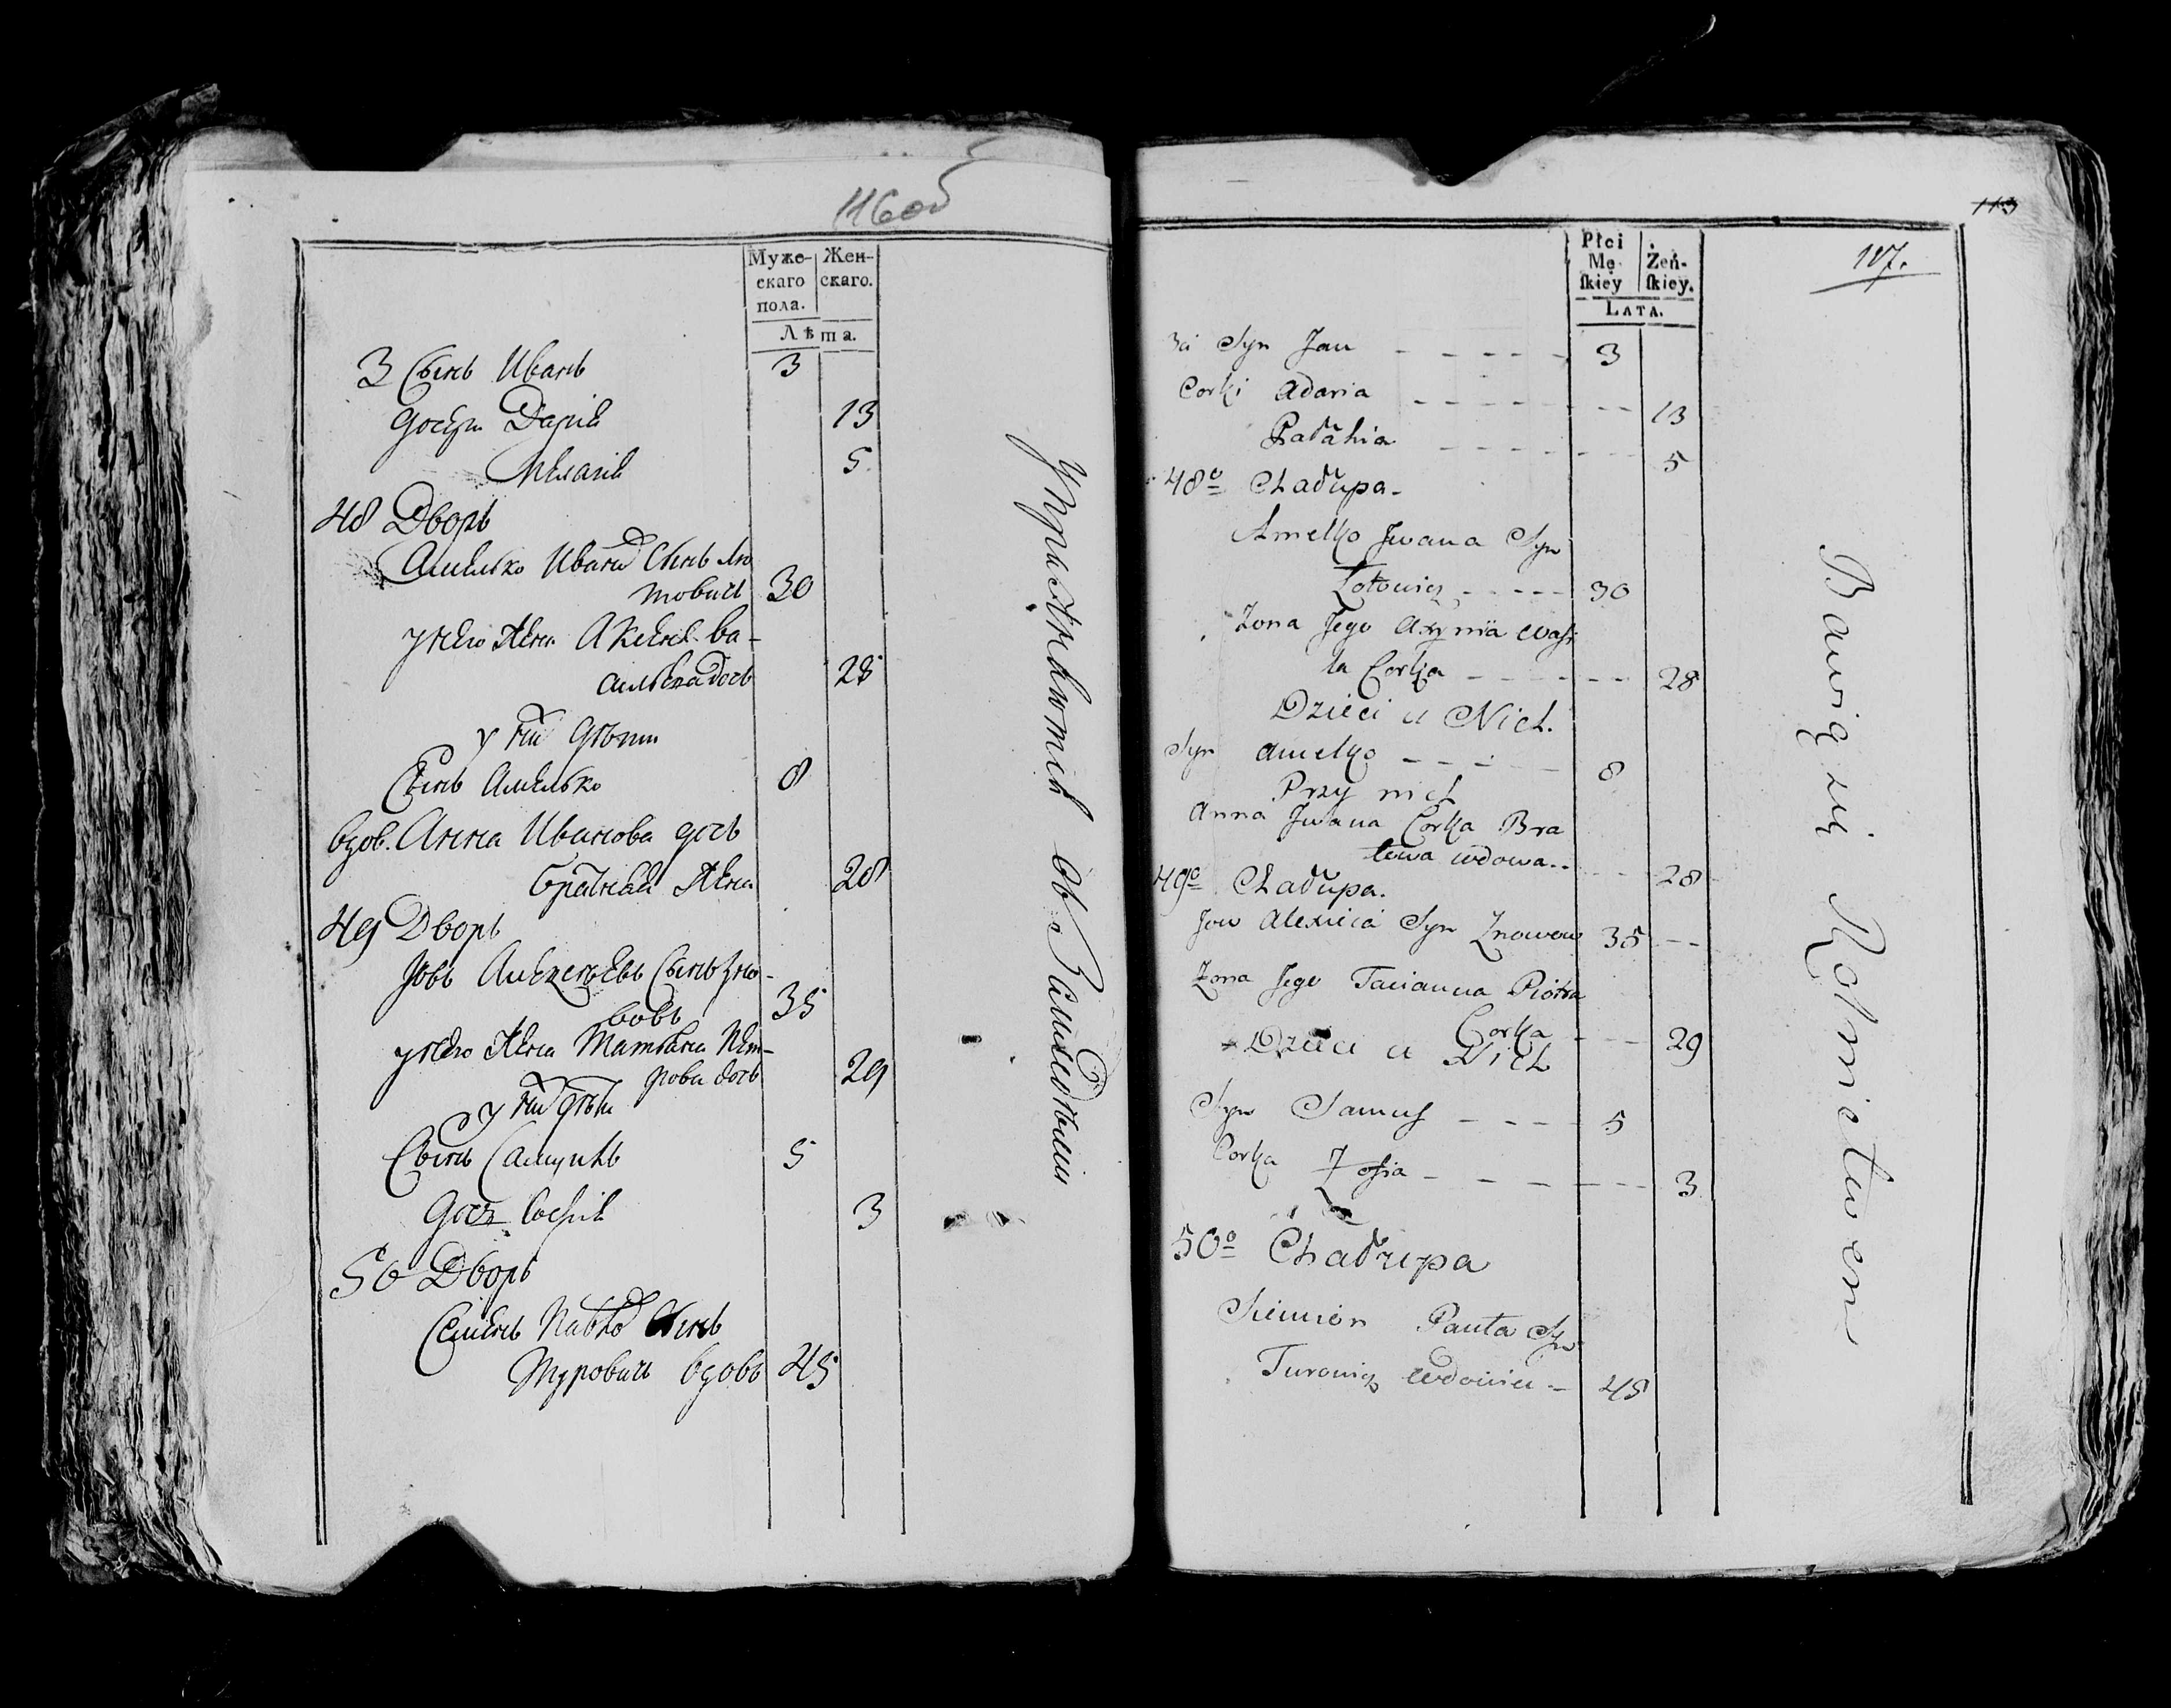 116об
Муже- Жен-
скаго скаго.
пола.
Лѣта.
3 Сынъ Иванъ 3
дочери Дарія 13
Пелагія 5
48 Дворъ
Амелько Ивана Сынъ Лю
товичъ 30
у него Жена Аксеня Ва-
сильева дочь 28
у них дѣти
Сынъ Амелько 8
вдов. Анна Иванова дочь
братняя Жена 28
49 Дворъ
Іовъ Алексеевъ Сынъ Зно-
вовъ 35
у него Жена Татьяна Пет-
рова дочь 29
у них дѣти
Сынъ Самусь 5
дочь Софія 3
50 Дворъ
Семенъ Павла Сынъ
Туровичъ вдовъ 45
Упражняются въ Земледѣліи
113
117.
Płci
Mę- Żeń-
skiey skiey.
LATA.
3ci Syn Jan 3
Corki Adaria 13
Pałahia 5
48º Chałupa.
Amelko Jwana Syn
Lotowicz 30
Żona Jego Axynia Wasi
la Corka 28
Dzieci u Nich.
Syn Amelko 8
Przy nich
Anna Jwana Corka Bra
towa wdowa 28
49º Chałupa.
Jow Alexieia Syn Znowow 35
Żona Jego Tacianna Piotra
Corka 29
Dzieci u Nich
Syn Samuś 5
Corka Zofia 3
50º Chałupa
Siemion Pawła Syn
Turowicz wdowiec 45
Bawią się Rolnictwem